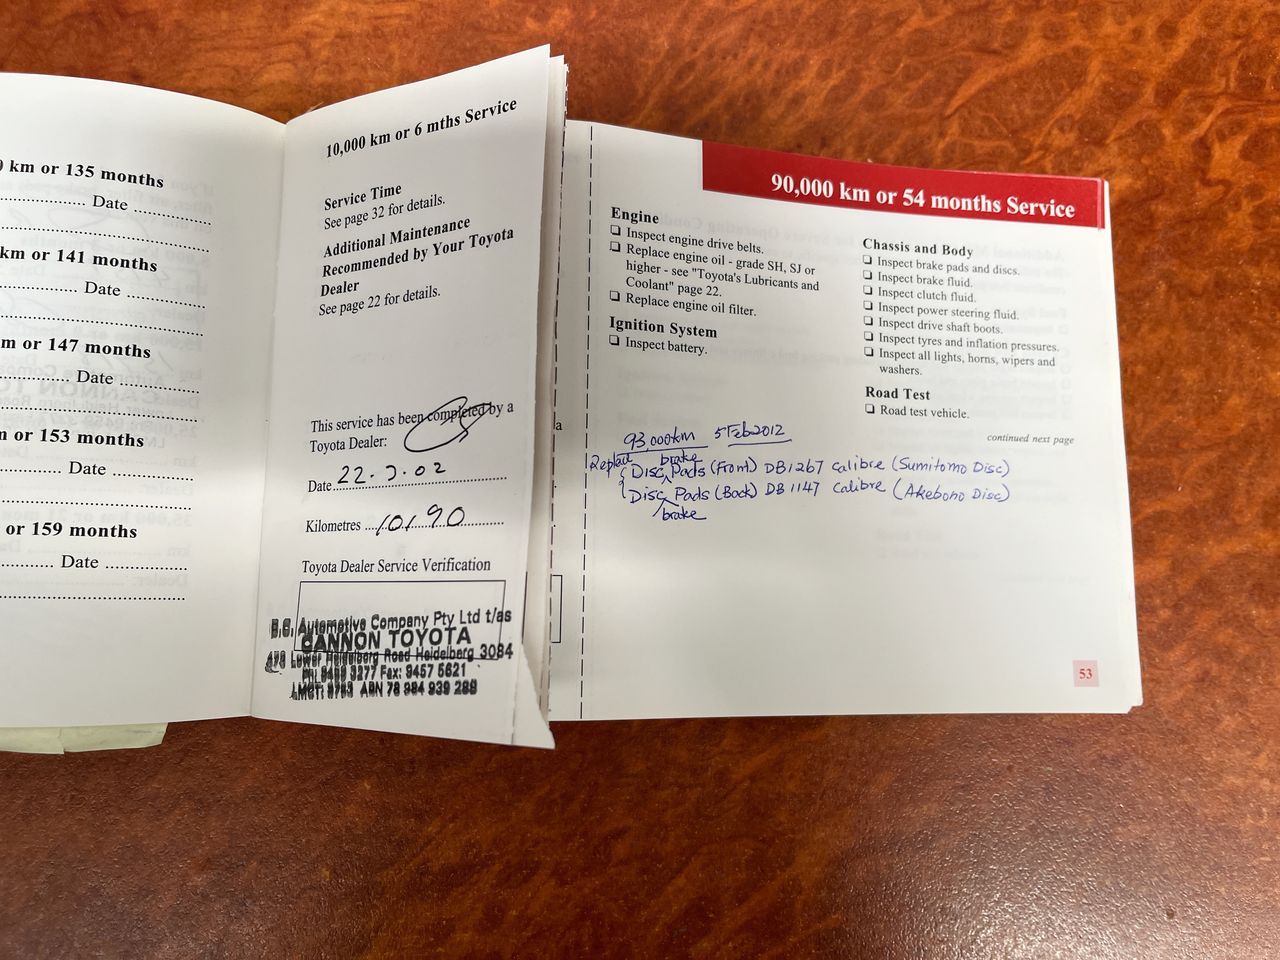 km or 135 months
Date
km or 141 months
Date
or 147 months
Date
or 153 months
Date
or 159 months
Date
10,000 km or 6 mths Service
Service Time
See page 32 for details.
Additional Maintenance
Recommended by Your Toyota
Dealer
See page 22 for details.
This service has been completed by a
Toyota Dealer:
Date 22.3.02
Kilometres 10190
Toyota Dealer Service Verification
B.G. Automotive Company Pty Ltd t/as
CANNON TOYOTA
Lower Heidelberg Road Heidelberg 3084
3277 Fax: 9457 5621
ABN 78 984 939 288
90,000 km or 54 months Service
Engine
❏ Inspect engine drive belts.
❏ Replace engine oil - grade SH, SJ or
higher - see "Toyota's Lubricants and
Coolant" page 22.
❏ Replace engine oil filter.
Ignition System
❏ Inspect battery.
Chassis and Body
❏ Inspect brake pads and discs.
❏ Inspect brake fluid.
❏ Inspect clutch fluid.
❏ Inspect power steering fluid.
❏ Inspect drive shaft boots.
❏ Inspect tyres and inflation pressures.
❏ Inspect all lights, horns, wipers and
washers.
Road Test
❏ Road test vehicle.
continued next page
93,000km 5 Feb 2012
Disc brake Pads (Front) DB1267 calibre (Sumitomo Disc)
Disc brake Pads (Back) DB1147 calibre (Akebono Disc)
53